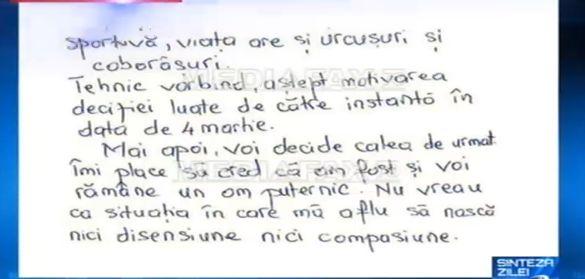 sportivă, viața are și urcușuri și
coborâșuri.
Tehnic vorbind, aștept motivarea
deciziei luate de către instantă în
data de 4 martie.
Mai apoi, voi decide calea de urmat
Îmi place să cred că am fost și voi
rămâne un om puternic. Nu vreau
ca situația în care mă aflu să nască
nici disensiune nici compasiune.
MEDIAFAX
MEDIAFAX
SINTEZA
ZILEI